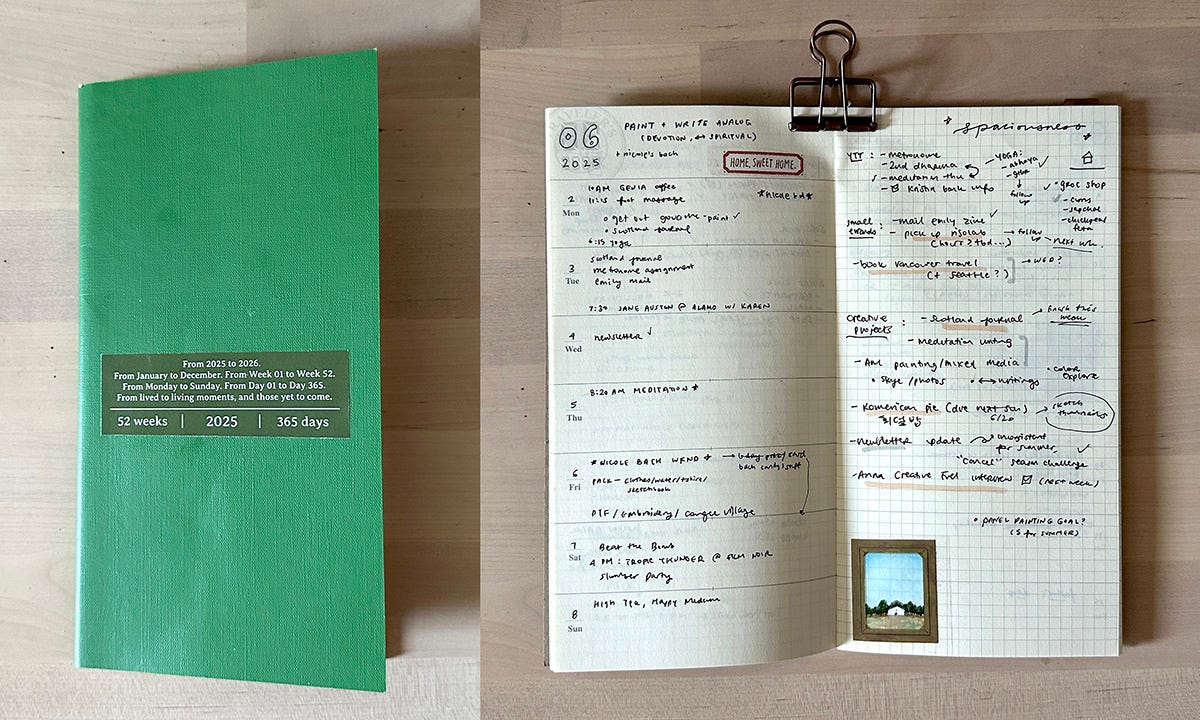 From 2025 to 2026.
From January to December. From Week 01 to Week 52.
From Monday to Sunday. From Day 01 to Day 365.
From lived to living moments, and those yet to come.
52 weeks | 2025 | 365 days
06
2025
PAINT + WRITE ANALOG
(DEVOTION, ↔ SPIRITUAL)
+ nicole's bach
HOME, SWEET HOME.
2
Mon
10AM GENIA coffee
11:15 foot massage
*nicole bd*
o get out gouache-paint ✓
o scotland journal
6:15 yoga
3
Tue
scotland journal
metronome assignment
emily mail
7:30 JANE AUSTEN @ ALAMO W/ KAREN
4
Wed
newsletter ✓
5
Thu
8:20 AM MEDITATION *
6
Fri
* NICOLE BACH WKND *
PACK - clothes/water/tshirt/
sketchbook
bach cards/stuff
PTF / Embroidery / Congee Village
7
Sat
Beat the Bomb
4 PM: TROPIC THUNDER @ FILM NOIR
Slumber party
8
Sun
High Tea, Happy Medium
* spaciousness *
YTT : - metronome
- 2nd dharma
✓ - meditation thu
- Krishna bank info
- YOGA:
- abhaya ✓
follow up
✓ • groc shop
- chickpeas
feta
small errands : - mail emily zine ✓
- pick up risolab → follow up
(hours? tbd...) next wk.
- book vancouver travel → WED?
(+ seattle?)
creative projects : - Scotland journal → finish this week
- Meditation writing
- AM painting/mixed media
• color explore
• Skye/photos • ↔ writings
- Komerican pie (due next sun) → sketch thumbnails
6/20
- newsletter update → inconsistent for summer, ✓
"cancel" season challenge
- Anna Creative Fuel interview ☑ (next week)
o PANEL PAINTING GOAL?
(5 for SUMMER)